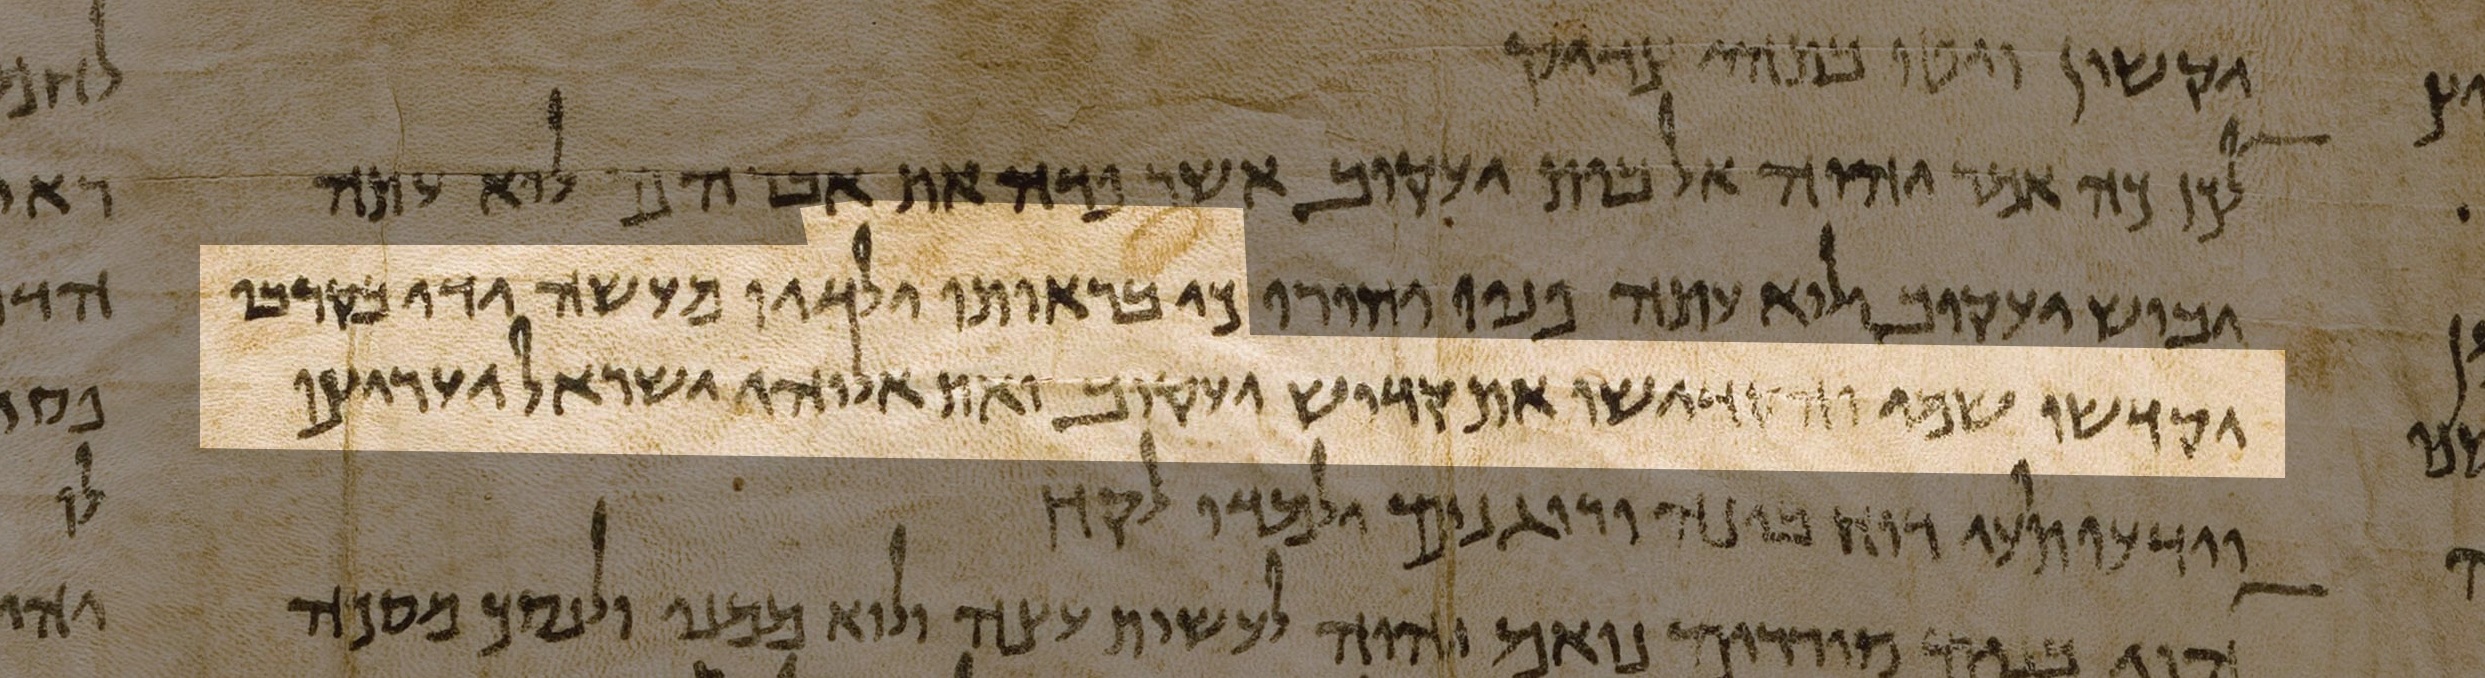 יקשון ויטו בתוהו צדיק
לכן כה אמר יהוה אל בית יעקוב אשר פדה את אברהם לוא עתה
יבוש יעקוב ולוא עתה פניו יחורו כי בראותו ילדיו מעשה ידי בקרבו
יקדישו שמי והקדישו את קדוש יעקוב ואת אלוהי ישראל יעריצו
וידעו תועי רוח בינה ורוגנים ילמדו לקח
הוי בנים סוררים נואם יהוה לעשות עצה ולוא ממני ולנסך מסכה